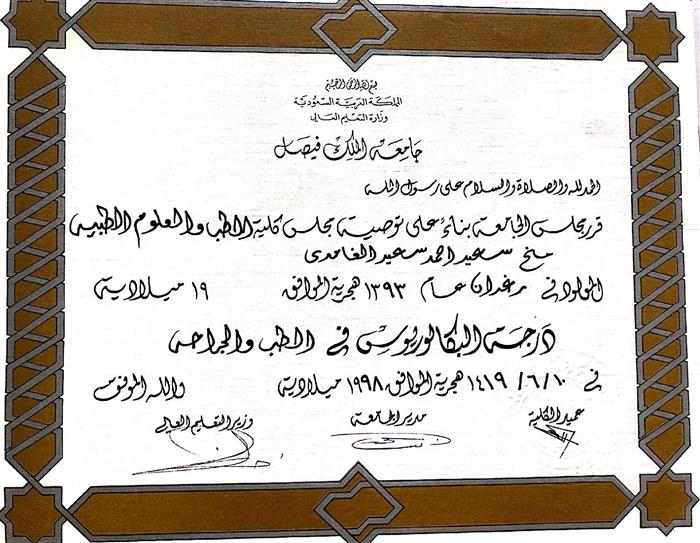 بسم الله الرحمن الرحيم
المملكة العربية السعودية
وزارة التعليم العالي
جامعة الملك فيصل
الحمد لله والصلاة والسلام على رسول الله
قرر مجلس الجامعة بناءً على توصية مجلس كلية الطب والعلوم الطبية
منح سعيد احمد سعيد الغامدي
المولود في رغدان عام ١٣٩٣ هجرية الموافق ١٩ ميلادية
درجة البكالوريوس في الطب والجراحة
في ١٠/٦/١٤١٩ هجرية الموافق ١٩٩٨ ميلادية والله الموفق
عميد الكلية مدير الجامعة وزير التعليم العالي